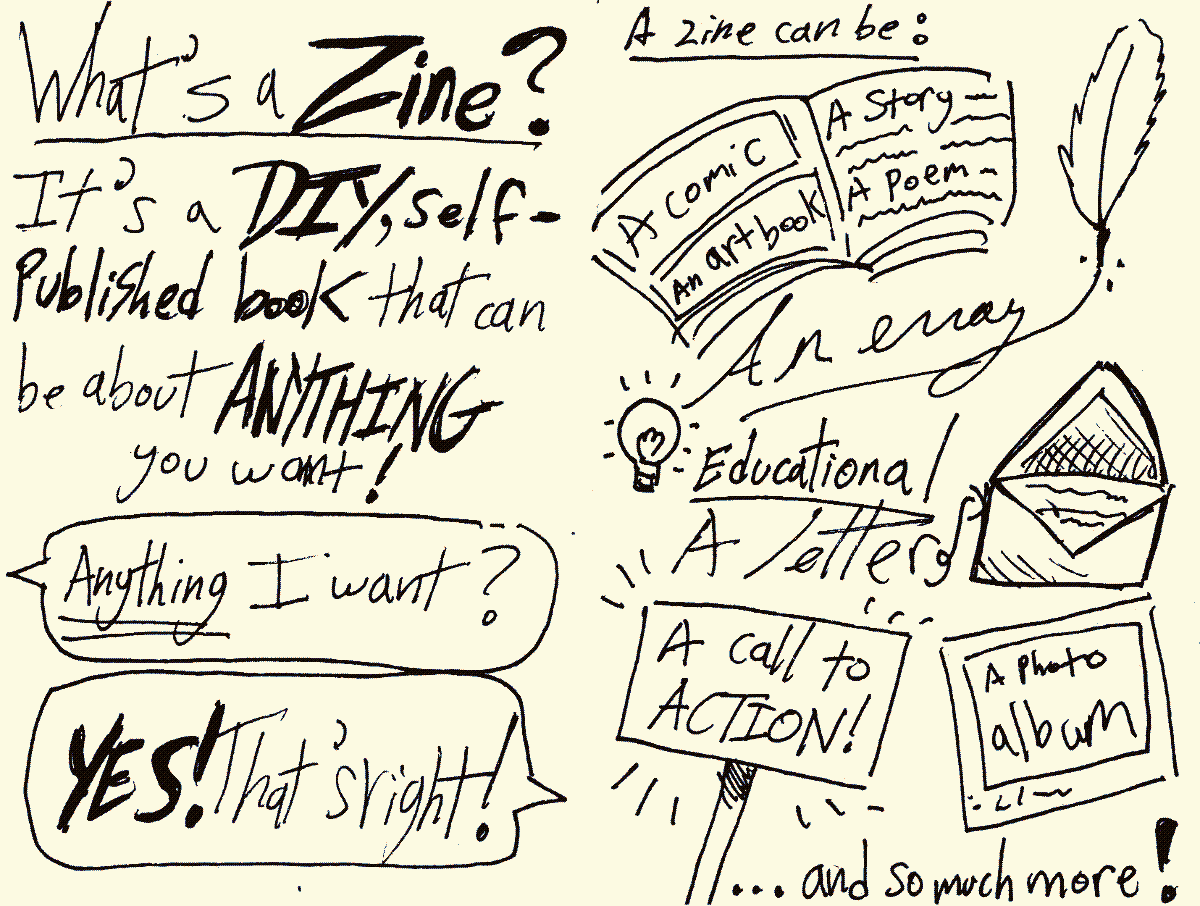 What's a Zine?
It's a DIY, self-
Published book that can
be about ANYTHING
you want!
Anything I want?
YES! That's right!
A zine can be:
A comic
An artbook
A Story
A Poem
An essay
Educational
A letter
A call to
ACTION!
A Photo
album
... and so much more!